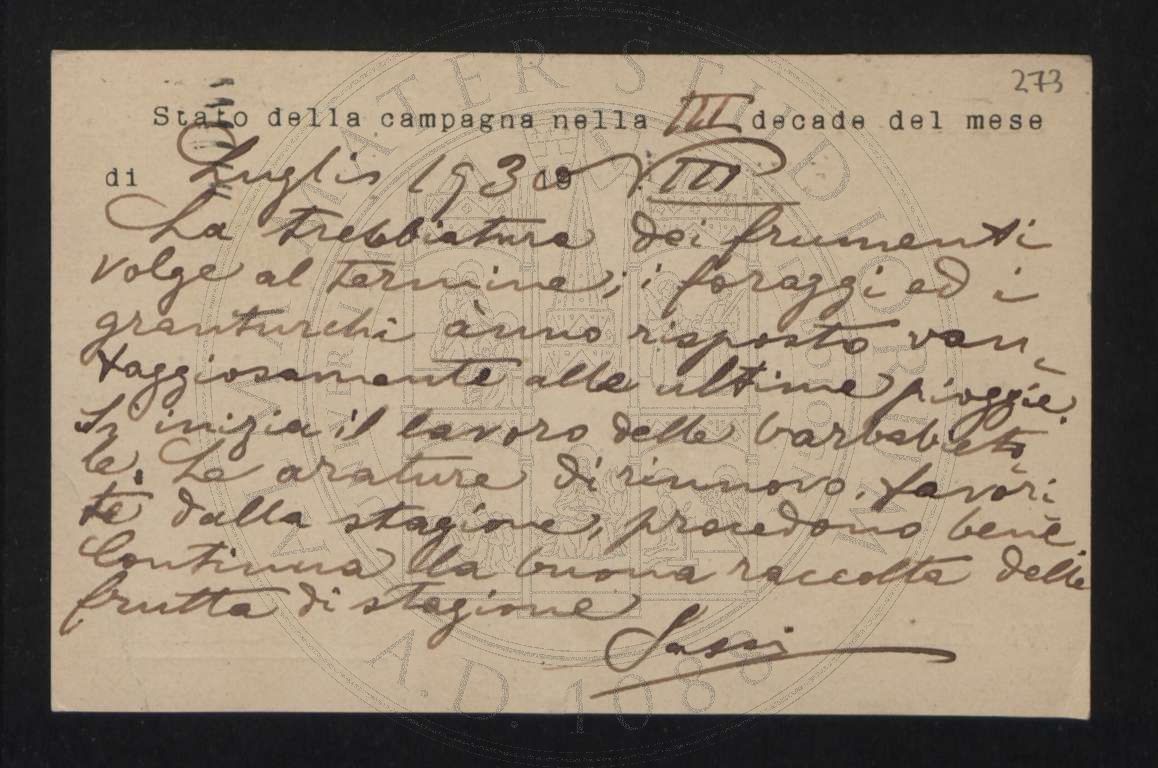 273
Stato della campagna nella III decade del mese
di Luglio 1930 19 VIII
La trebbiatura dei frumenti
volge al termine; i foraggi ed i
granturchi ànno risposto van-
taggiosamente alle ultime pioggie.
Si inizia il lavoro delle barbabieto-
le. Le arature di rinnovo, favori-
te dalla stagione, procedono bene
Continua la buona raccolta delle
frutta di stagione
Sassi
ALMA MATER STUDIORUM
A.D. 1088